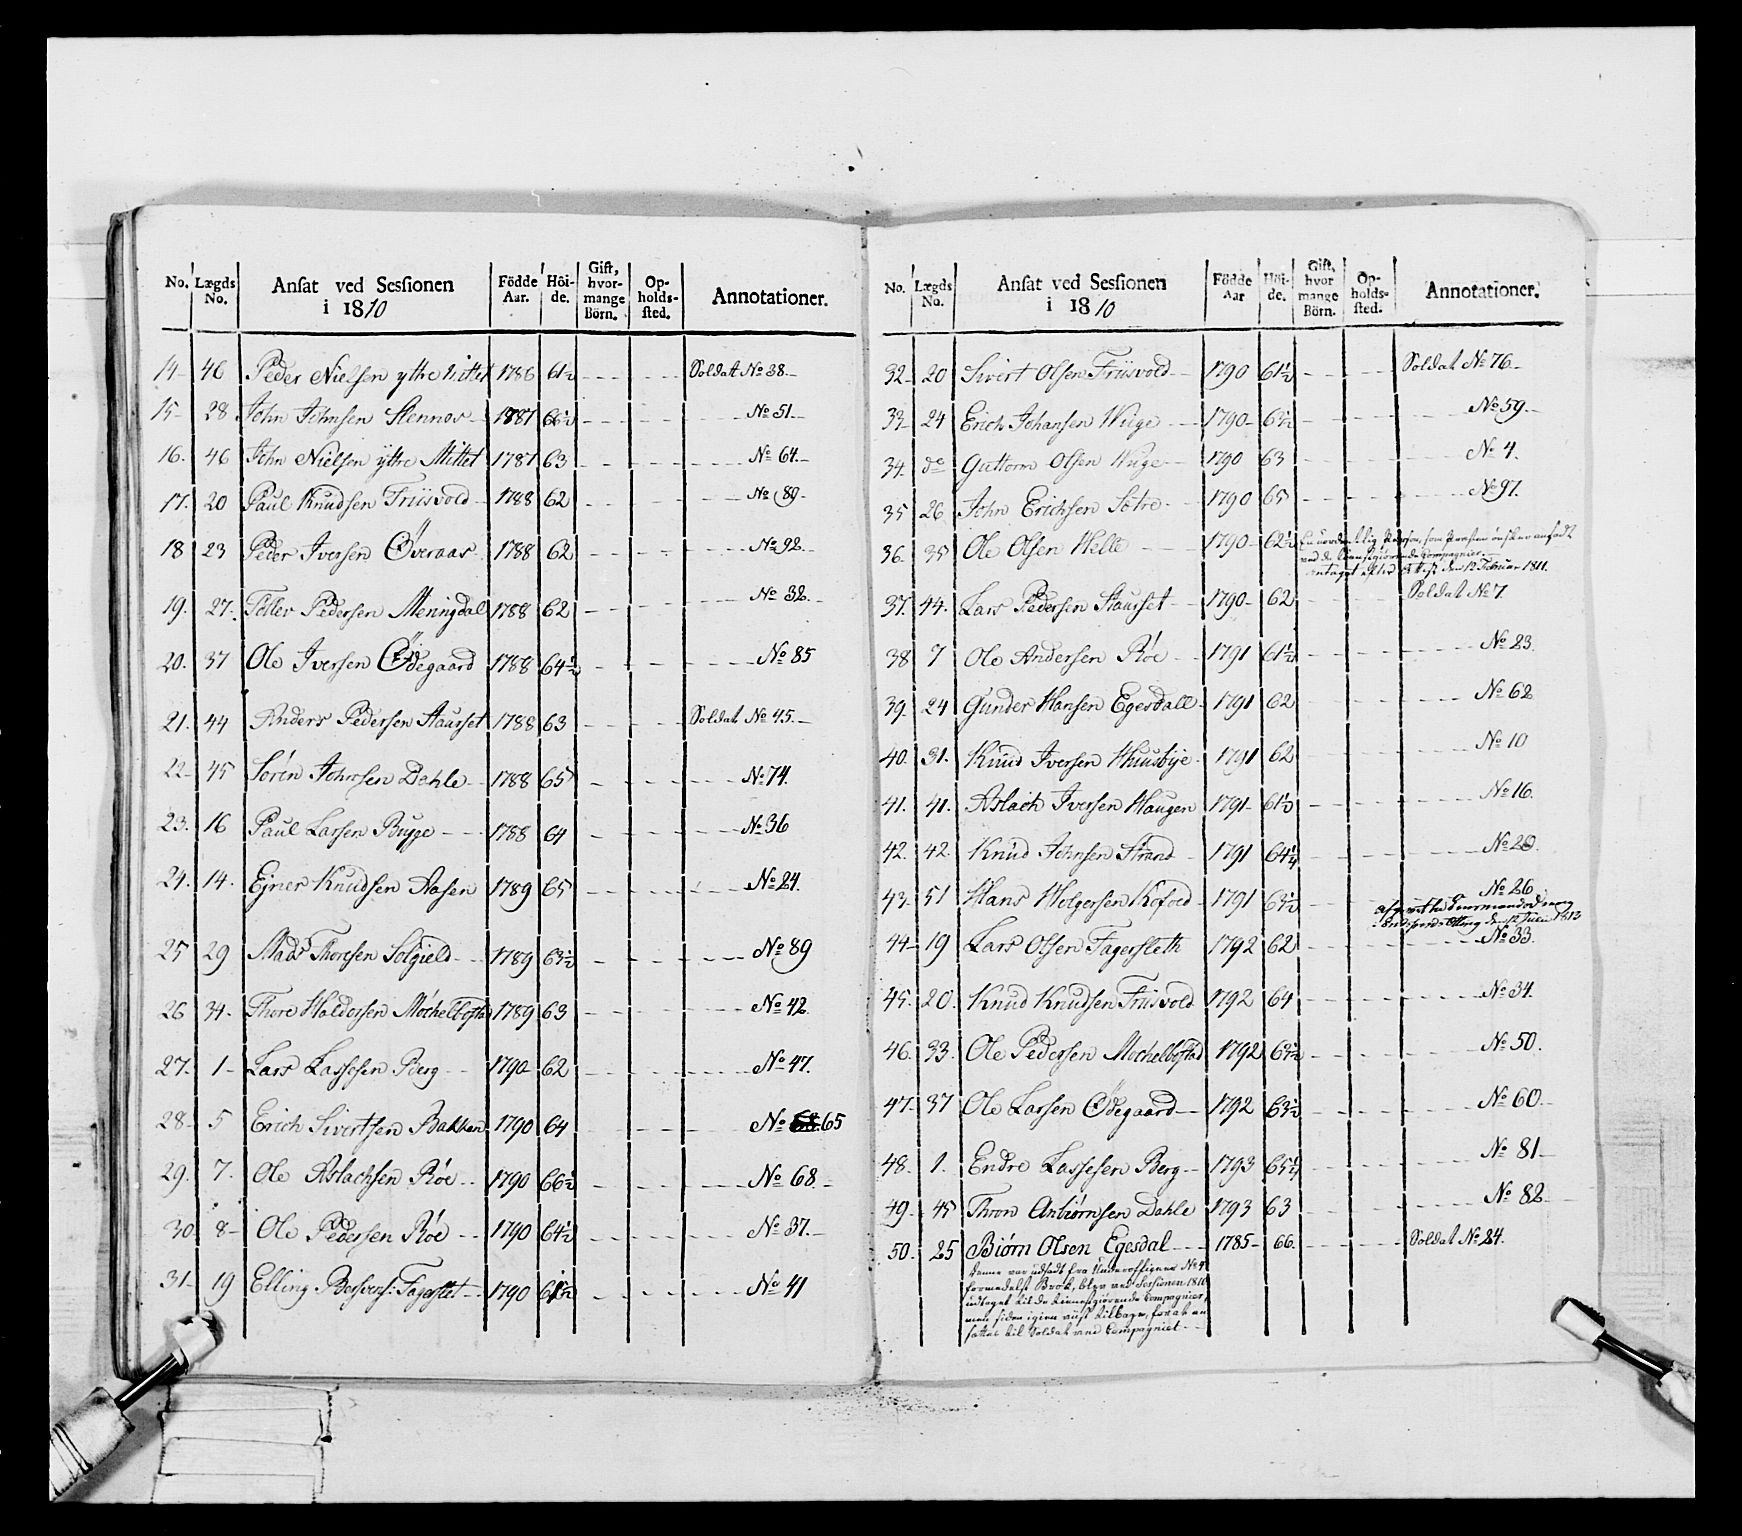 No. Lægds No. Ansat ved Sessionen i 1810 Födde Aar. Höide. Gift, hvormange Börn. Opholdssted. Annotationer.
14 46 Peder Nielsen ytre Mittet 1786 61½ Soldat No 38.
15 28 John Johnsen Stennos 1787 66½ No 51.
16. 46 John Nielsen ÿttre Mittet 1787 63 No 64.
17. 20 Paul Knudsen Friisvold 1788 62 No 89
18 23 Peder Iversen Överaas 1788 62 No 92.
19. 27. Pedersen Meningdal 1788 62 No 32.
20. 37 Ole Iversen Ödegaard 1788 64½ No 85
21. 44 Anders Pedersen Staurset 1788 63 Soldat No 45.
22 45 Sörén Johnsen Dahle 1788 65 No 74.
23. 16 Paul Larsen Bugge 1788 64 No 36
24. 14. Ejner Knudsen Aasen 1789 65 No 24.
25 29 Mads Thoresen Solgield 1789 63½ No 89
26 34. Thore Haldorsen 1789 63 No 42
27. 1 Lars Lassesen Berg 1790 62 No 47.
28 5 Erich Sivertsen Bakken 1790 64 No 65
29. 7. Ole Aslachsen Röe 1790 66½ No 68.
30 8 Ole Pedersen Röe 1790 64½ No 37.
31 19 Elling Fagerslet 1790 No 41
No. Lægds No. Ansat ved Sessionen i 1810 Födde Aar Höide. Gift, hvor mange Börn. Opholdssted. Annotationer.
32 20 Sivert Olsen Friisvold 1790 61½ Soldat No 76
33 24 Erich Johansen Wüge 1790 63½ No 59.
34. do Guttorm Olsen Wüge 1790 63 No 4.
35 26 John Erichsen Sötre 1790 65 No 97.
36. 35 Ole Olsen Helle 1790 62½ En uordentlig Person, som Præsten önsker ansadt
ved de tienestgiörende Compagnier.
Antaget efter Attest den 12 Februar 1811.
37. 44. Lars Pedersen Staurset 1790 62 Soldat No 7
38 7 Ole Andersen Röe 1791 61½ No 23.
39. 24 Gunder Hansen Egesdall 1791 62 No 62
40. 31. Knud Iversen Huusbÿe 1791 62 No 10
41. 41. Aslach Iversen Haugen 1791 61½ No 16.
42. 42 Knud Johnsen Strand 1791 64¼ No 20.
43. 51 Hans Holgersen Kofoed 1791 63½ No 26
den 12 1813
44 19 Lars Olsen Fagersleth 1792 62 No 33.
45. 20. Knud Knudsen Friisvold 1792 64 No 34.
46. 33. Ole Pedersen Mochelbostad 1792 63½ No 50.
47. 37 Ole Larsen Ödegaard 1792 63½ No 60.
48. 1. Endre Lassesen Berg 1793 65½ No 81
49. 45 Thron Anbiörnsen Dahle 1793 63 No 82
50. 25 Biörn Olsen Egesdal 1785 66. Soldat No 24.
Denne var udsadt fra Underofficerer No 4
formedelst Brok, blev ved Sessionen 1810
udtaget til de tienestgiörende Compagnier,
men siden igien viist tilbage, for at an
sættes til Soldat ved Compagniet.